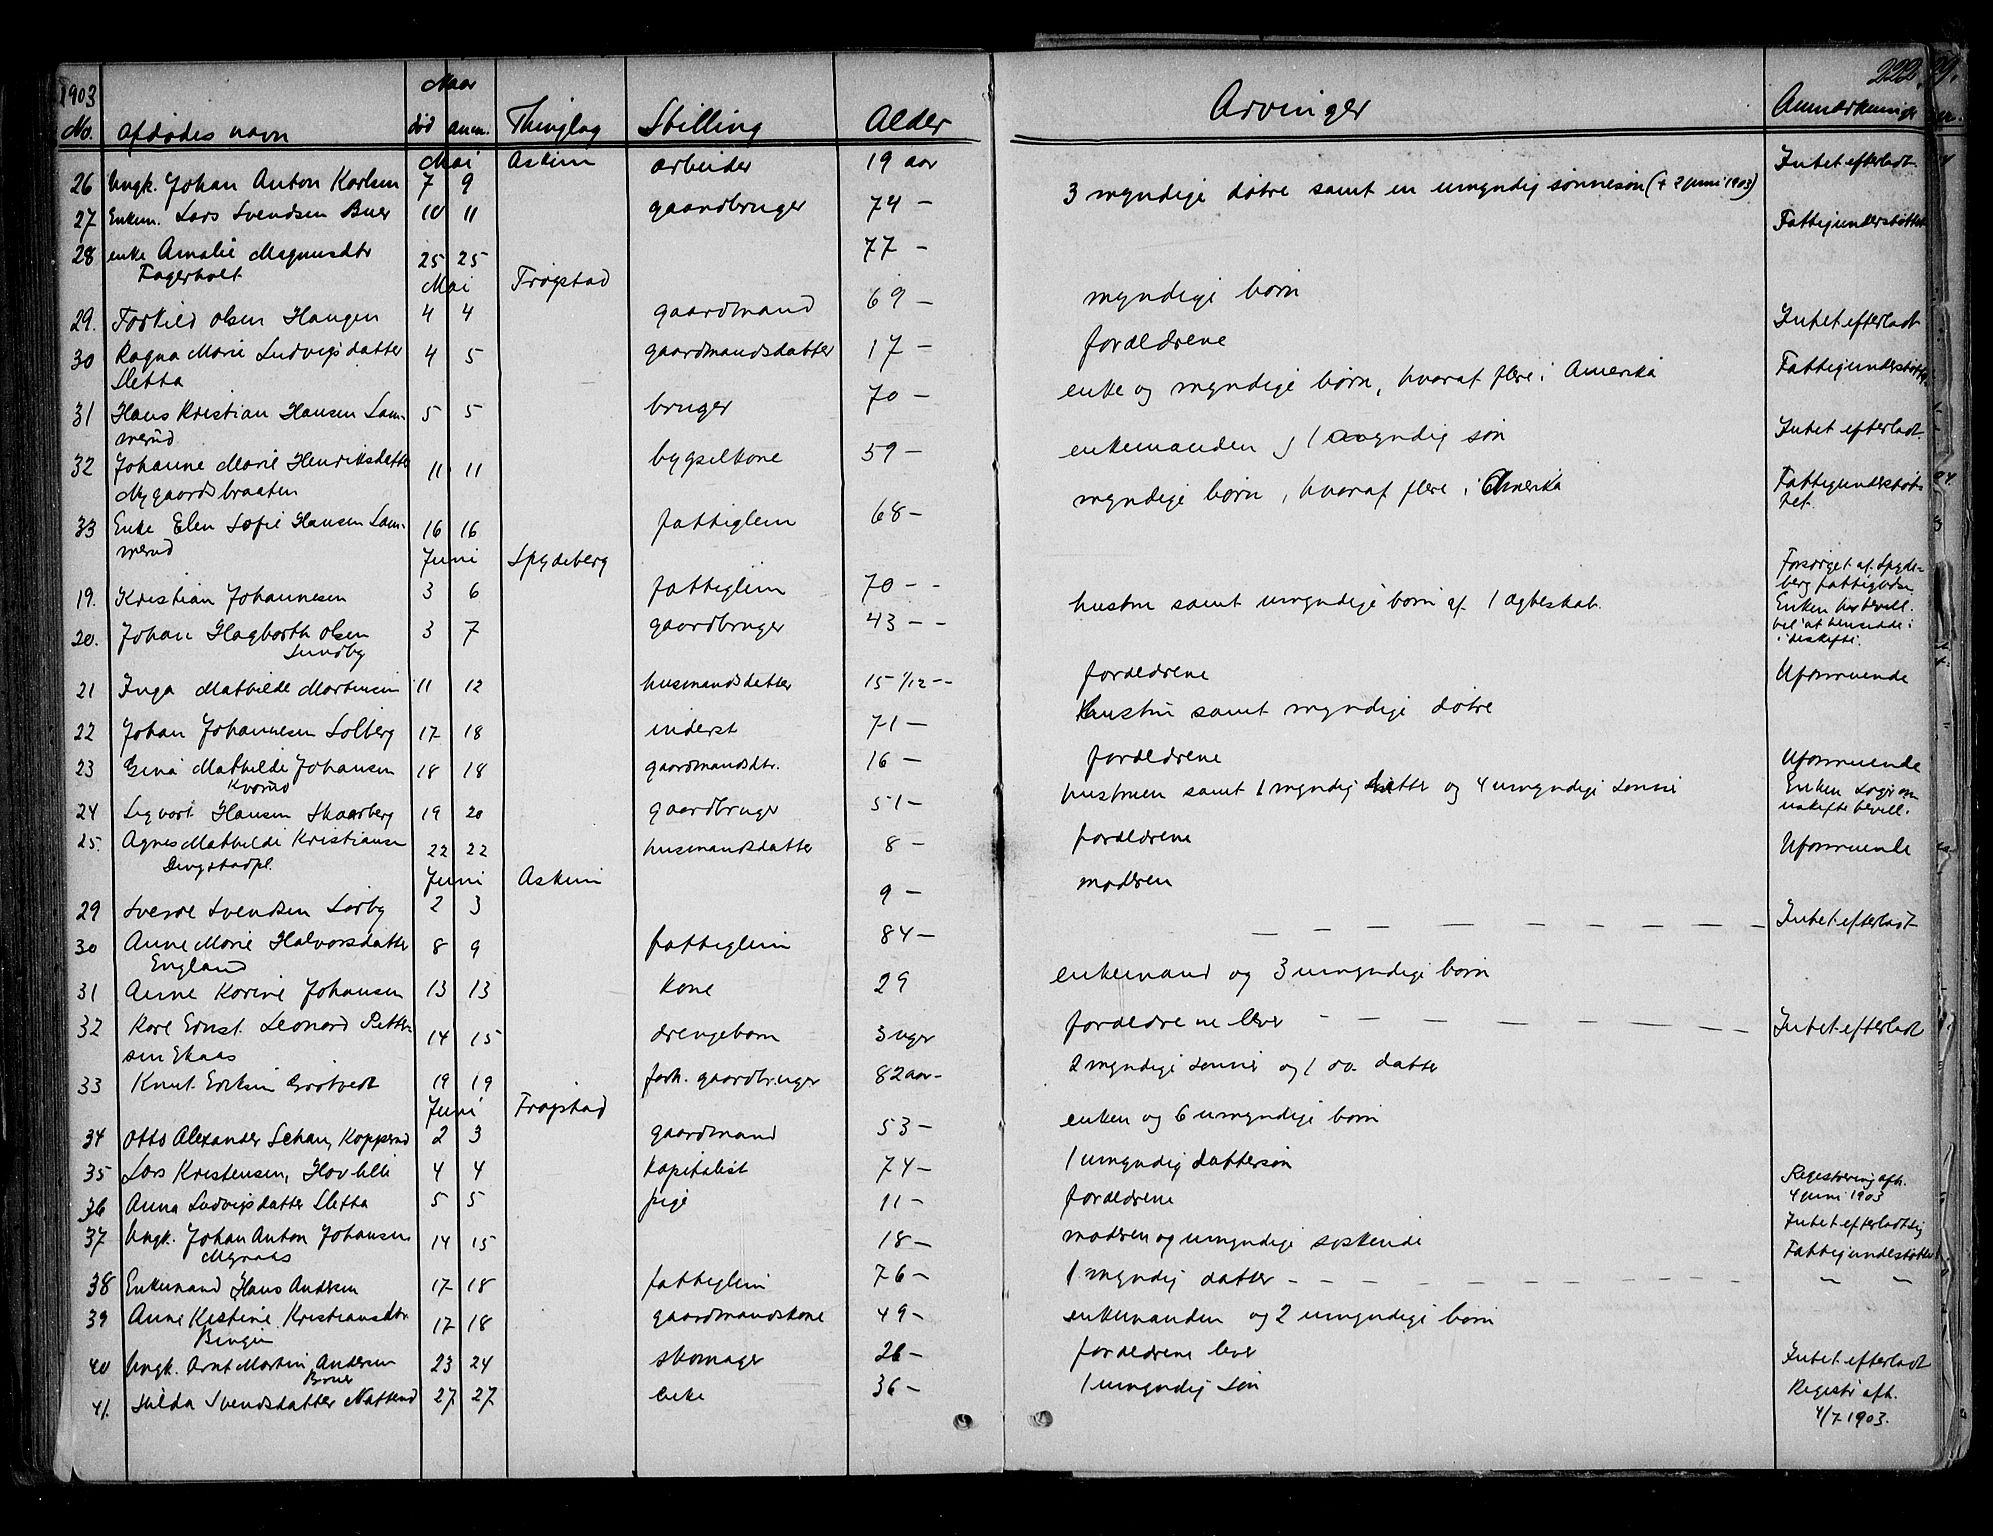 1903 Naar 222.
No. afdødes navn død anm. Thinglag Stilling Alder Arvinger Anmærkninger
Mai Askim
26 Ungk. Johan Anton Karlsen 7 9 arbeider 19 aar Intet efterladt.
27 Enkem. Lars Svendsen Buer 10 11 gaardbruger 74 – 3 myndige døtre samt en umyndig sønnesøn († 2 juni 1903)
28 enke Amalie Magnusdtr 25 25 77 – Fattigunderstøttet
Fagerholt
Mai Trøgstad
29. Torkild Olsen Haugen 4 4 gaardmand 69 – myndige børn
30 Ragna Marie Ludvigsdatter 4 5 gaardmandsdatter 17 – forældrene Intet efterladt
Sletta
31 Hans Kristian Hansen Lam- 5 5 bruger 70 – enke og myndige børn, hvoraf flere i Amerika Fattigunderstøttet
merud
32 Johanne Marie Henriksdatter 11 11 bygselkone 59 – enkemanden j 1 myndig søn Intet efterladt.
Nygaardsbraaten
33 Enke Elen Sofie Hansen Lam- 16 16 fattiglem 68 – myndige børn, hvoraf flere i Amerika Fattigunderstøt-
merud tet.
Juni Spydeberg
19. Kristian Johannesen 3 6 fattiglem 70 – – Forsørget af Spyde-
berg fattigvæsen
20. Johan Hagbarth Olsen 3 7 gaardbruger 43 – – hustru samt umyndige børn af 1 ægteskab. Enken har bevill.
Sundby til at hensidde i
uskifte.
21 Inga Mathilde Martinsen 11 12 husmandsdatter 15 1/12 – – forældrene Uformuende
22 Johan Johannesen Solberg 17 18 inderst 71 – Hustru samt myndige døtre
23 Gina Mathilde Johansen 18 18 gaardmandsdtr. 16 – forældrene Uformuende
Kvarud
24 Sigvart Hansen Skaarberg 19 20 gaardbruger 51 – hustruen samt 1 myndig datter og 4 umyndige sønner Enken søgt om
uskiftebevill.
25. Agnes Mathilde Kristiansen 22 22 husmandsdatter 8 – forældrene Uformuende
Lingstadpl.
Juni Askim
29 Sverre Svendsen Sørby 2 3 9 – moderen
30 Anne Marie Halvorsdatter 8 9 fattiglem 84 – — — — — Intet efterladt
England
31 Anne Karine Johansen 13 13 kone 29 enkemand og 3 umyndige børn
32 Karl Ernst Leonard Petter- 14 15 drengebarn 3 uger forældrene lever – — — — Intet efterladt
sen Skaas
33 Knut Eriksen Grøtvedt 19 19 forh. gaardbruger 82 aar – 2 myndige sønner og 1 do. datter
Juni Trøgstad
34 Otto Alexander Schau, Kopperud 2 3 gaardmand 53 – enken og 6 umyndige børn
35 Lars Kristensen, Hovlilli 4 4 kapitalist 74 – 1 umyndig dattersøn Registrering afh.
4 juni 1903
36 Anna Ludvigsdatter Sletta 5 5 pige 11 – forældrene Intet efterladt sig
37 Ungk. Johan Anton Johansen 14 15 18 – moderen og umyndige søskende Fattigunderstøttet
Myraas
38 Enkemand Hans Andersen 17 18 fattiglem 76 – 1 myndig datter – – – – – –
39 Anne Kristine Kristiansdtr 17 18 gaardmandskone 49 – enkemanden og 2 umyndige børn
Bingen
40 Ungk. Arnt Martin Andersen 23 24 skomager 26 – forældrene lever Intet efterladt
Bruer
41. Hilda Svendsdatter Natterud 27 27 enke 36 – 1 umyndig søn Registr afh.
4/7 1903.